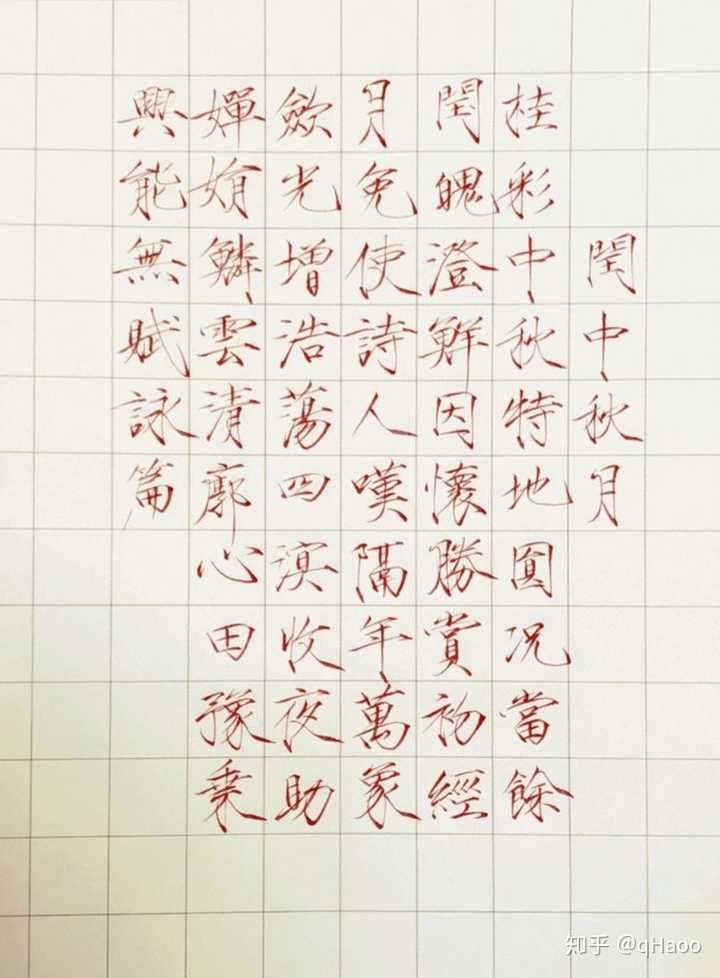 閏中秋月
桂彩中秋特地圓況當餘
閏魄澄鮮因懷勝賞初經
月免使詩人嘆隔年萬象
斂光增浩蕩四溟收夜助
嬋娟鱗雲清廓心田豫乗
興能無賦詠篇
知乎 @qHaoo